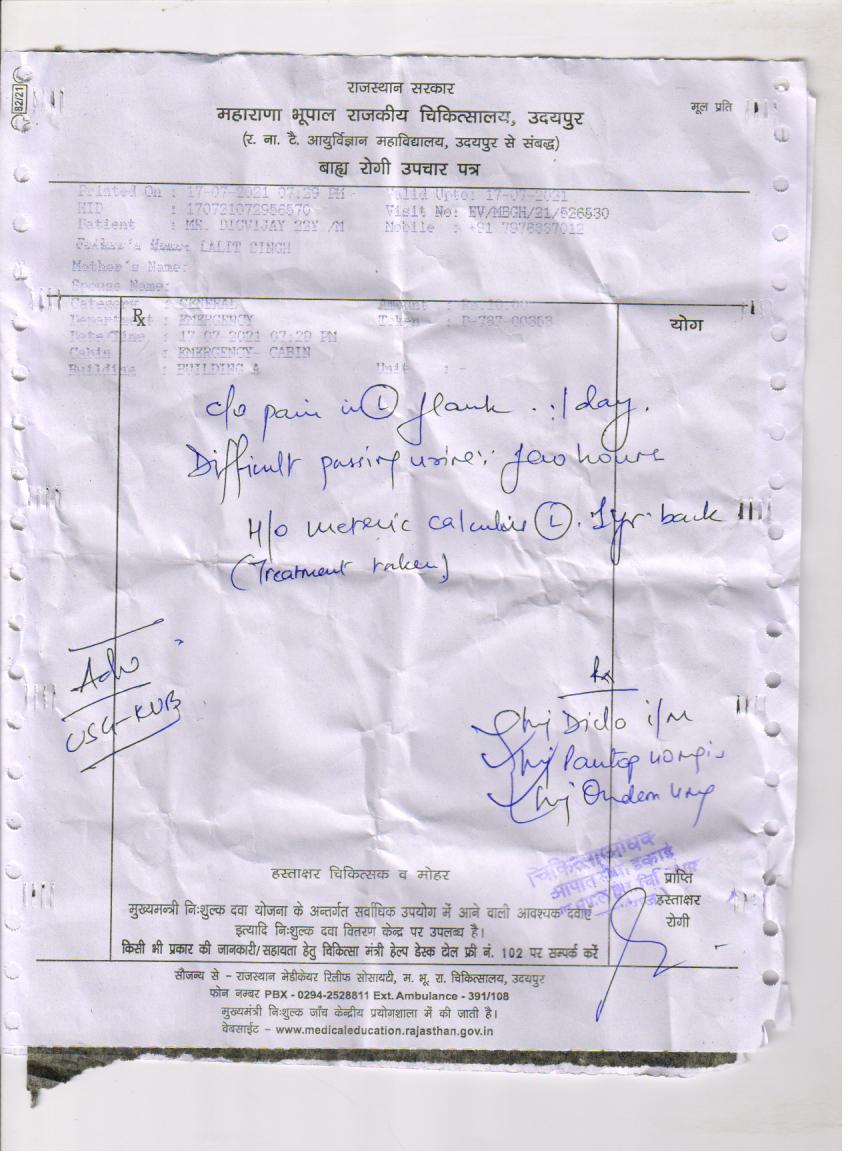 82/21
राजस्थान सरकार
महाराणा भूपाल राजकीय चिकित्सालय, उदयपुर
मूल प्रति
(र. ना. टै. आयुर्विज्ञान महाविद्यालय, उदयपुर से संबद्ध)
बाह्य रोगी उपचार पत्र
Printed On : 17-07-2021 07:29 PM Valid Upto: 17-07-2021
HID : 170721072956570 Visit No: EV/MBGH/21/526530
Patient : MR. DIGVIJAY 22Y /M Mobile : +91 7976837012
Father's Name: LALIT SINGH
Mother's Name:
Spouse Name:
Category : GENERAL Amount : Rs.10.00
Department : EMERGENCY Token : P-787-00353
Date/Time : 17-07-2021 07:29 PM
Cabin : EMERGENCY- CABIN
Building : BUILDING A Unit : -
Rx
योग
c/o pain in (L) flank .:1 day.
Difficult passing urine:: few hours
H/o ureteric calculus (L). 1yr. back
(Treatment taken)
Adv
USG-KUB
Rx
Inj Diclo i/m
Inj Pantop 40mg
Inj Ondem 4mg
हस्ताक्षर चिकित्सक व मोहर
प्राप्ति
हस्ताक्षर
रोगी
मुख्यमन्त्री निःशुल्क दवा योजना के अन्तर्गत सर्वाधिक उपयोग में आने वाली आवश्यक दवाएं
इत्यादि निःशुल्क दवा वितरण केन्द्र पर उपलब्ध है।
किसी भी प्रकार की जानकारी/सहायता हेतु चिकित्सा मंत्री हेल्प डेस्क टोल फ्री नं. 102 पर सम्पर्क करें
सौजन्य से – राजस्थान मेडीकेयर रिलीफ सोसायटी, म. भू. रा. चिकित्सालय, उदयपुर
फोन नम्बर PBX - 0294-2528811 Ext. Ambulance - 391/108
मुख्यमंत्री निःशुल्क जाँच केन्द्रीय प्रयोगशाला में की जाती है।
वेबसाईट – www.medicaleducation.rajasthan.gov.in